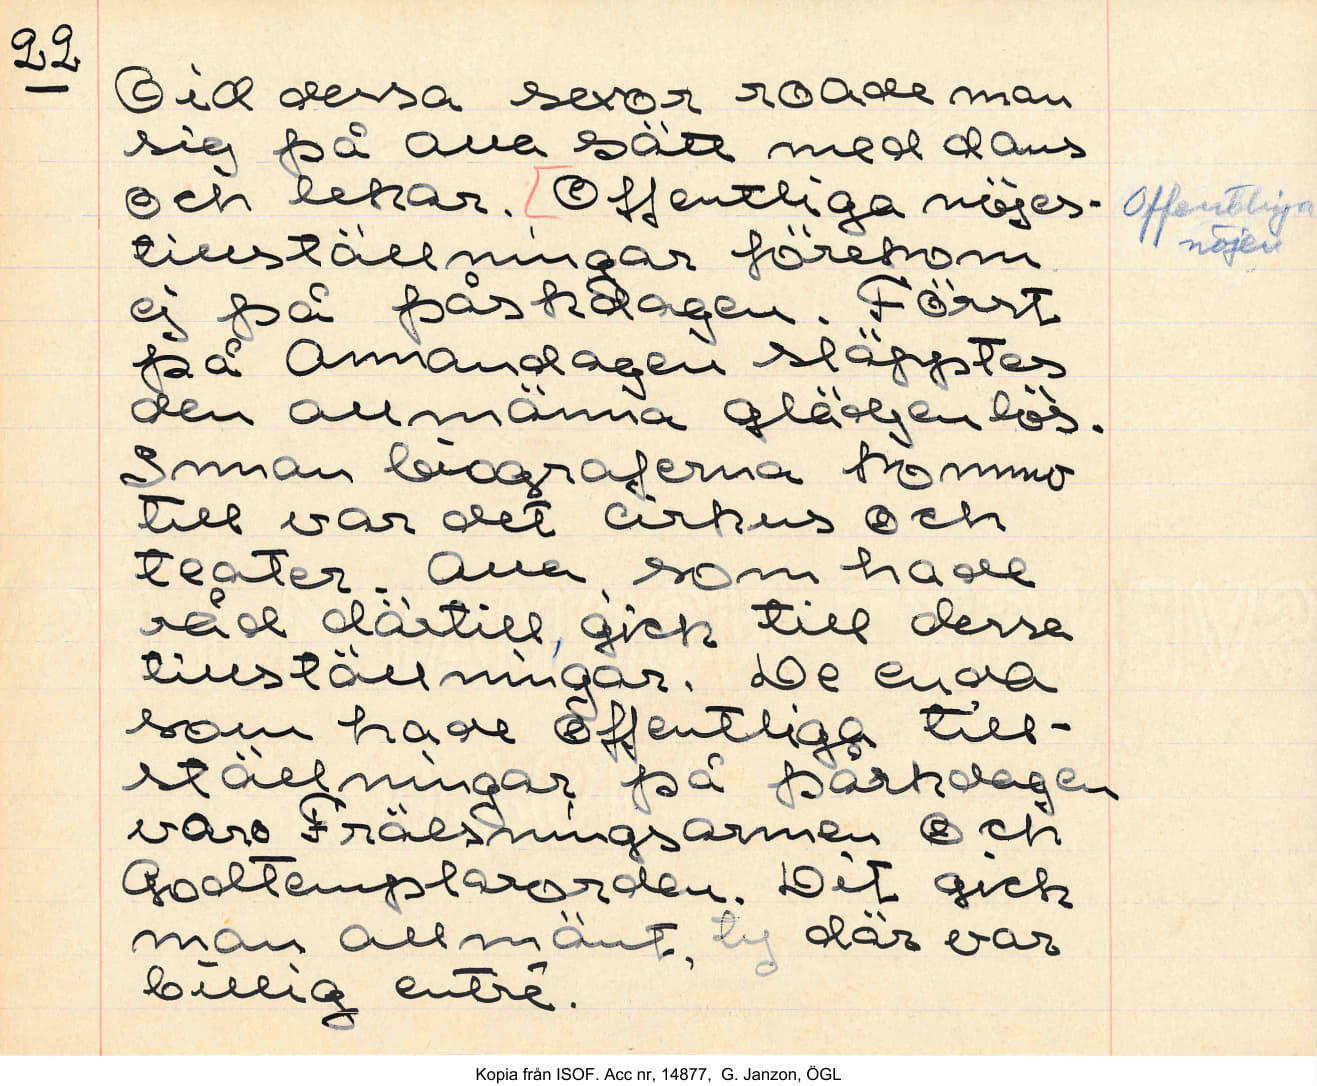 22
Vid dessa sexor roade man
sig på alla sätt med dans
och lekar. [Offentliga nöjes-
Offentliga
nöjen
tillställningar förekom
ej på påskdagen. Först
på Annandagen släpptes
den allmänna glädjen lös.
Innan biograferna kommo
till var det cirkus och
teater. Alla som hade
råd därtill, gick till dessa
tillställningar. De enda
som hade offentliga till-
ställningar på påskdagen
varo Frälsningsarmen och
Godtemplarorden. Dit gick
man allmänt, ty där var
billig entré.
Kopia från ISOF. Acc nr, 14877, G. Janzon, ÖGL